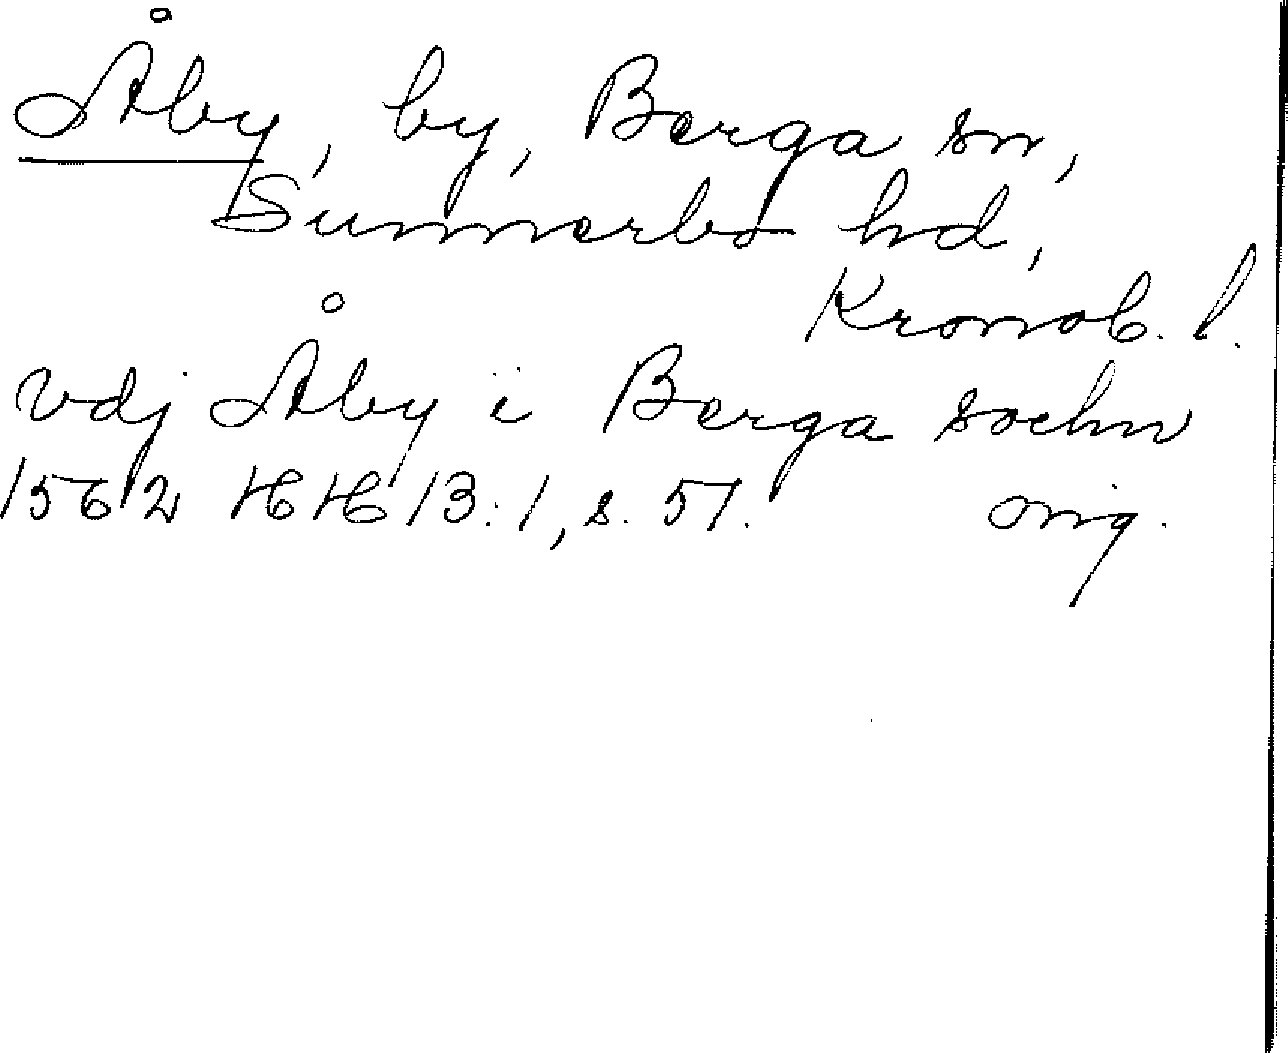 Åby, by, Berga sn,
Sunnerbo hd,
Kronob. l.
vdj Åby i Berga sochn
1562 HH 13:1, s. 51. orig.